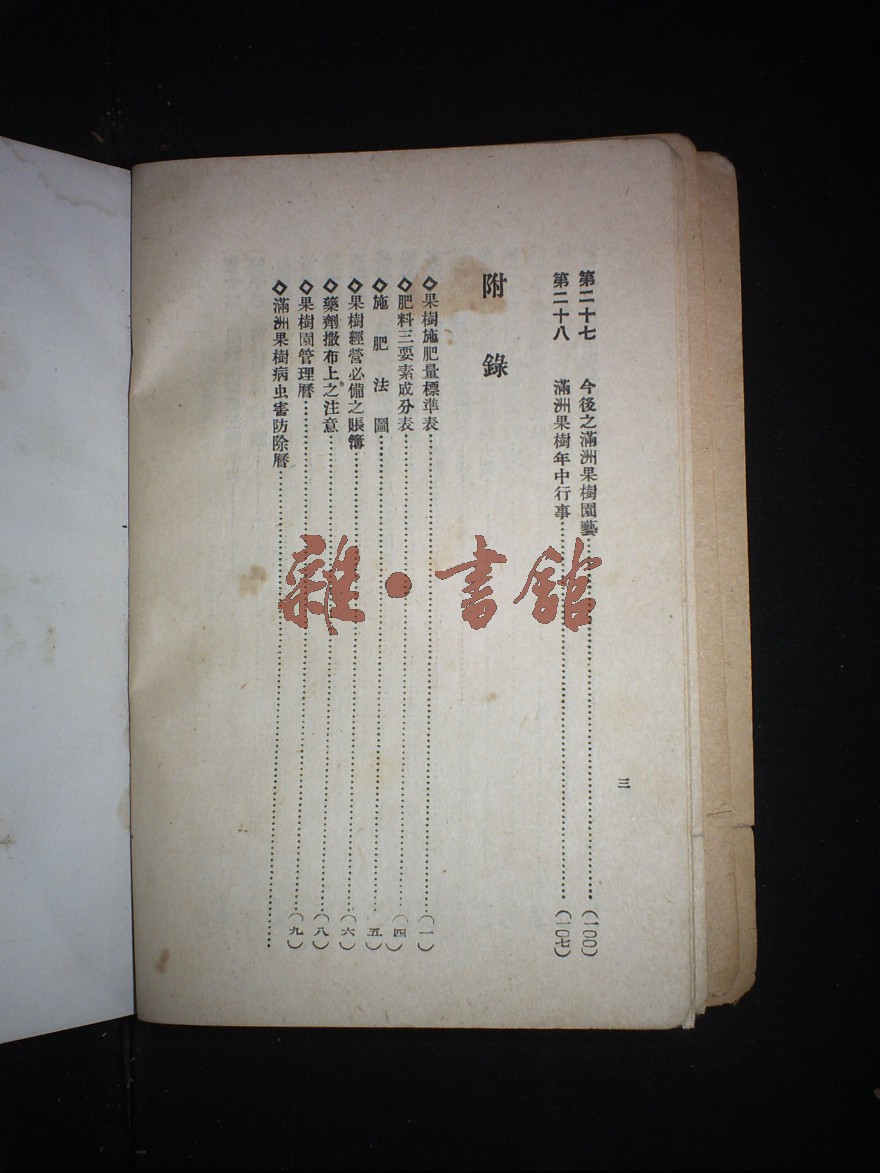 第二十七 今後之滿洲果樹園藝……(一〇〇)
第二十八 滿洲果樹年中行事……(一〇七)
附錄
◇果樹施肥量標準表……(一)
◇肥料三要素成分表……(四)
◇施肥法圖……(五)
◇果樹經營必備之賬簿……(六)
◇藥劑撒布上之注意……(八)
◇果樹園管理曆……(九)
◇滿洲果樹病虫害防除曆……
三
雜·書館